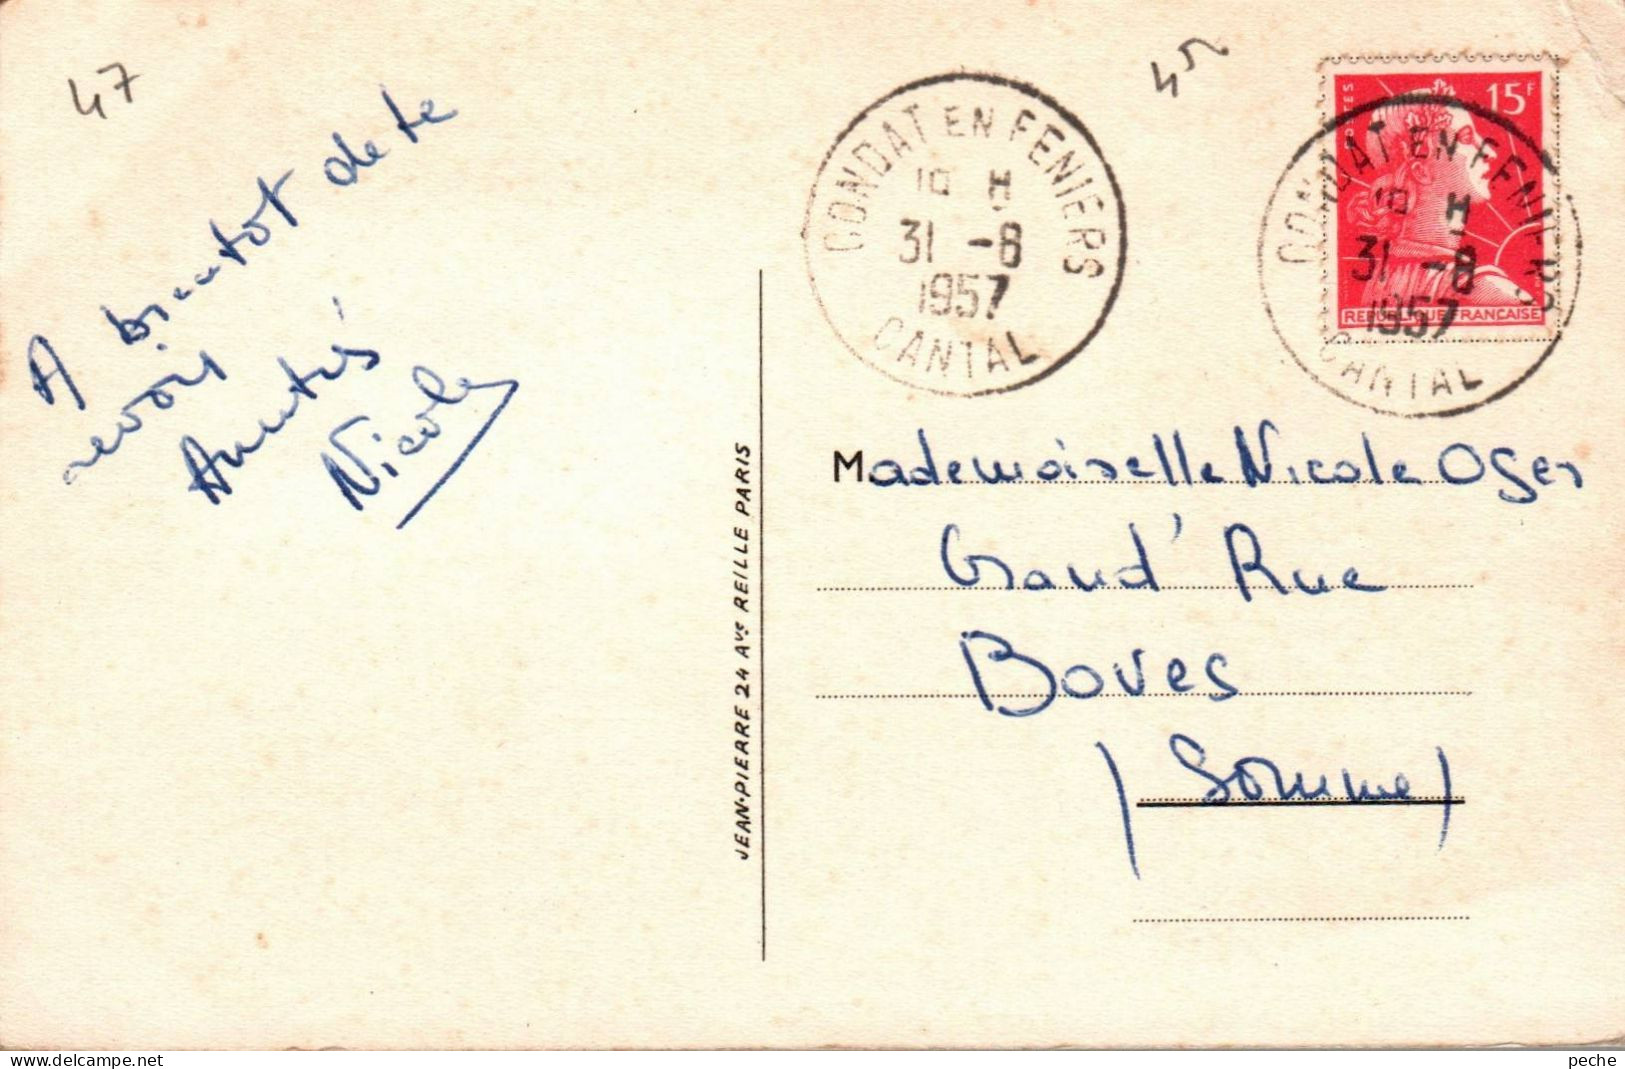 47
450
A bientot de te
revoir
Amitiés
Nicole
JEAN-PIERRE 24 AVE REILLE PARIS
CONDAT EN FENIERS
18 H
31 -8
1957
CANTAL
POSTES
15F
REPUBLIQUE FRANCAISE
CONDAT EN FENIERS
18 H
31 -8
1957
CANTAL
Mademoiselle Nicole Oger
Grand' Rue
Boves
(Somme)
http://www.delcampe.net
peche